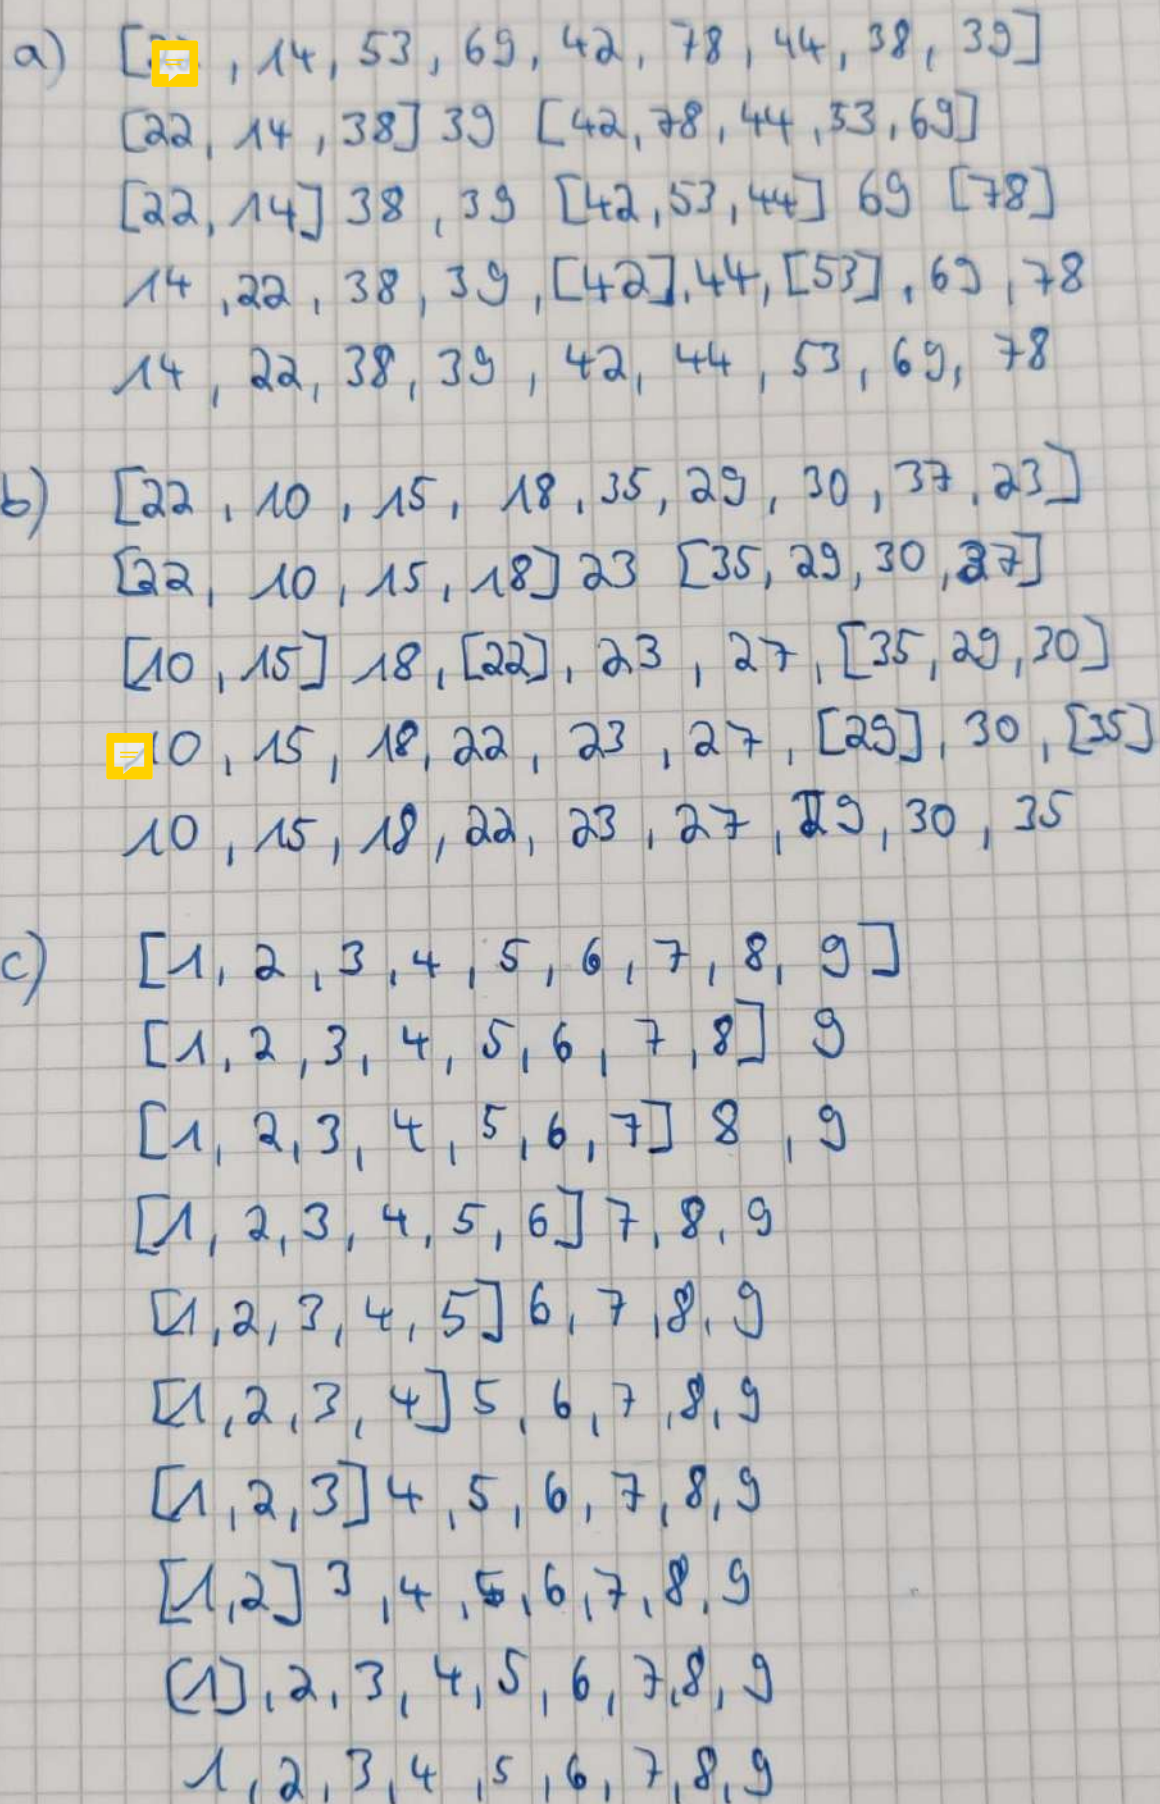 a) [ , 14, 53, 69, 42, 78, 44, 38, 39]
[22, 14, 38] 39 [42, 78, 44, 53, 69]
[22, 14] 38, 39 [42, 53, 44] 69 [78]
14, 22, 38, 39, [42], 44, [53], 69, 78
14, 22, 38, 39, 42, 44, 53, 69, 78
b) [22, 10, 15, 18, 35, 29, 30, 37, 23]
[22, 10, 15, 18] 23 [35, 29, 30, 27]
[10, 15] 18, [22], 23, 27, [35, 29, 30]
10, 15, 18, 22, 23, 27, [29], 30, [35]
10, 15, 18, 22, 23, 27, 29, 30, 35
c) [1, 2, 3, 4, 5, 6, 7, 8, 9]
[1, 2, 3, 4, 5, 6, 7, 8] 9
[1, 2, 3, 4, 5, 6, 7] 8, 9
[1, 2, 3, 4, 5, 6] 7, 8, 9
[1, 2, 3, 4, 5] 6, 7, 8, 9
[1, 2, 3, 4] 5, 6, 7, 8, 9
[1, 2, 3] 4, 5, 6, 7, 8, 9
[1, 2] 3, 4, 5, 6, 7, 8, 9
[1], 2, 3, 4, 5, 6, 7, 8, 9
1, 2, 3, 4, 5, 6, 7, 8, 9